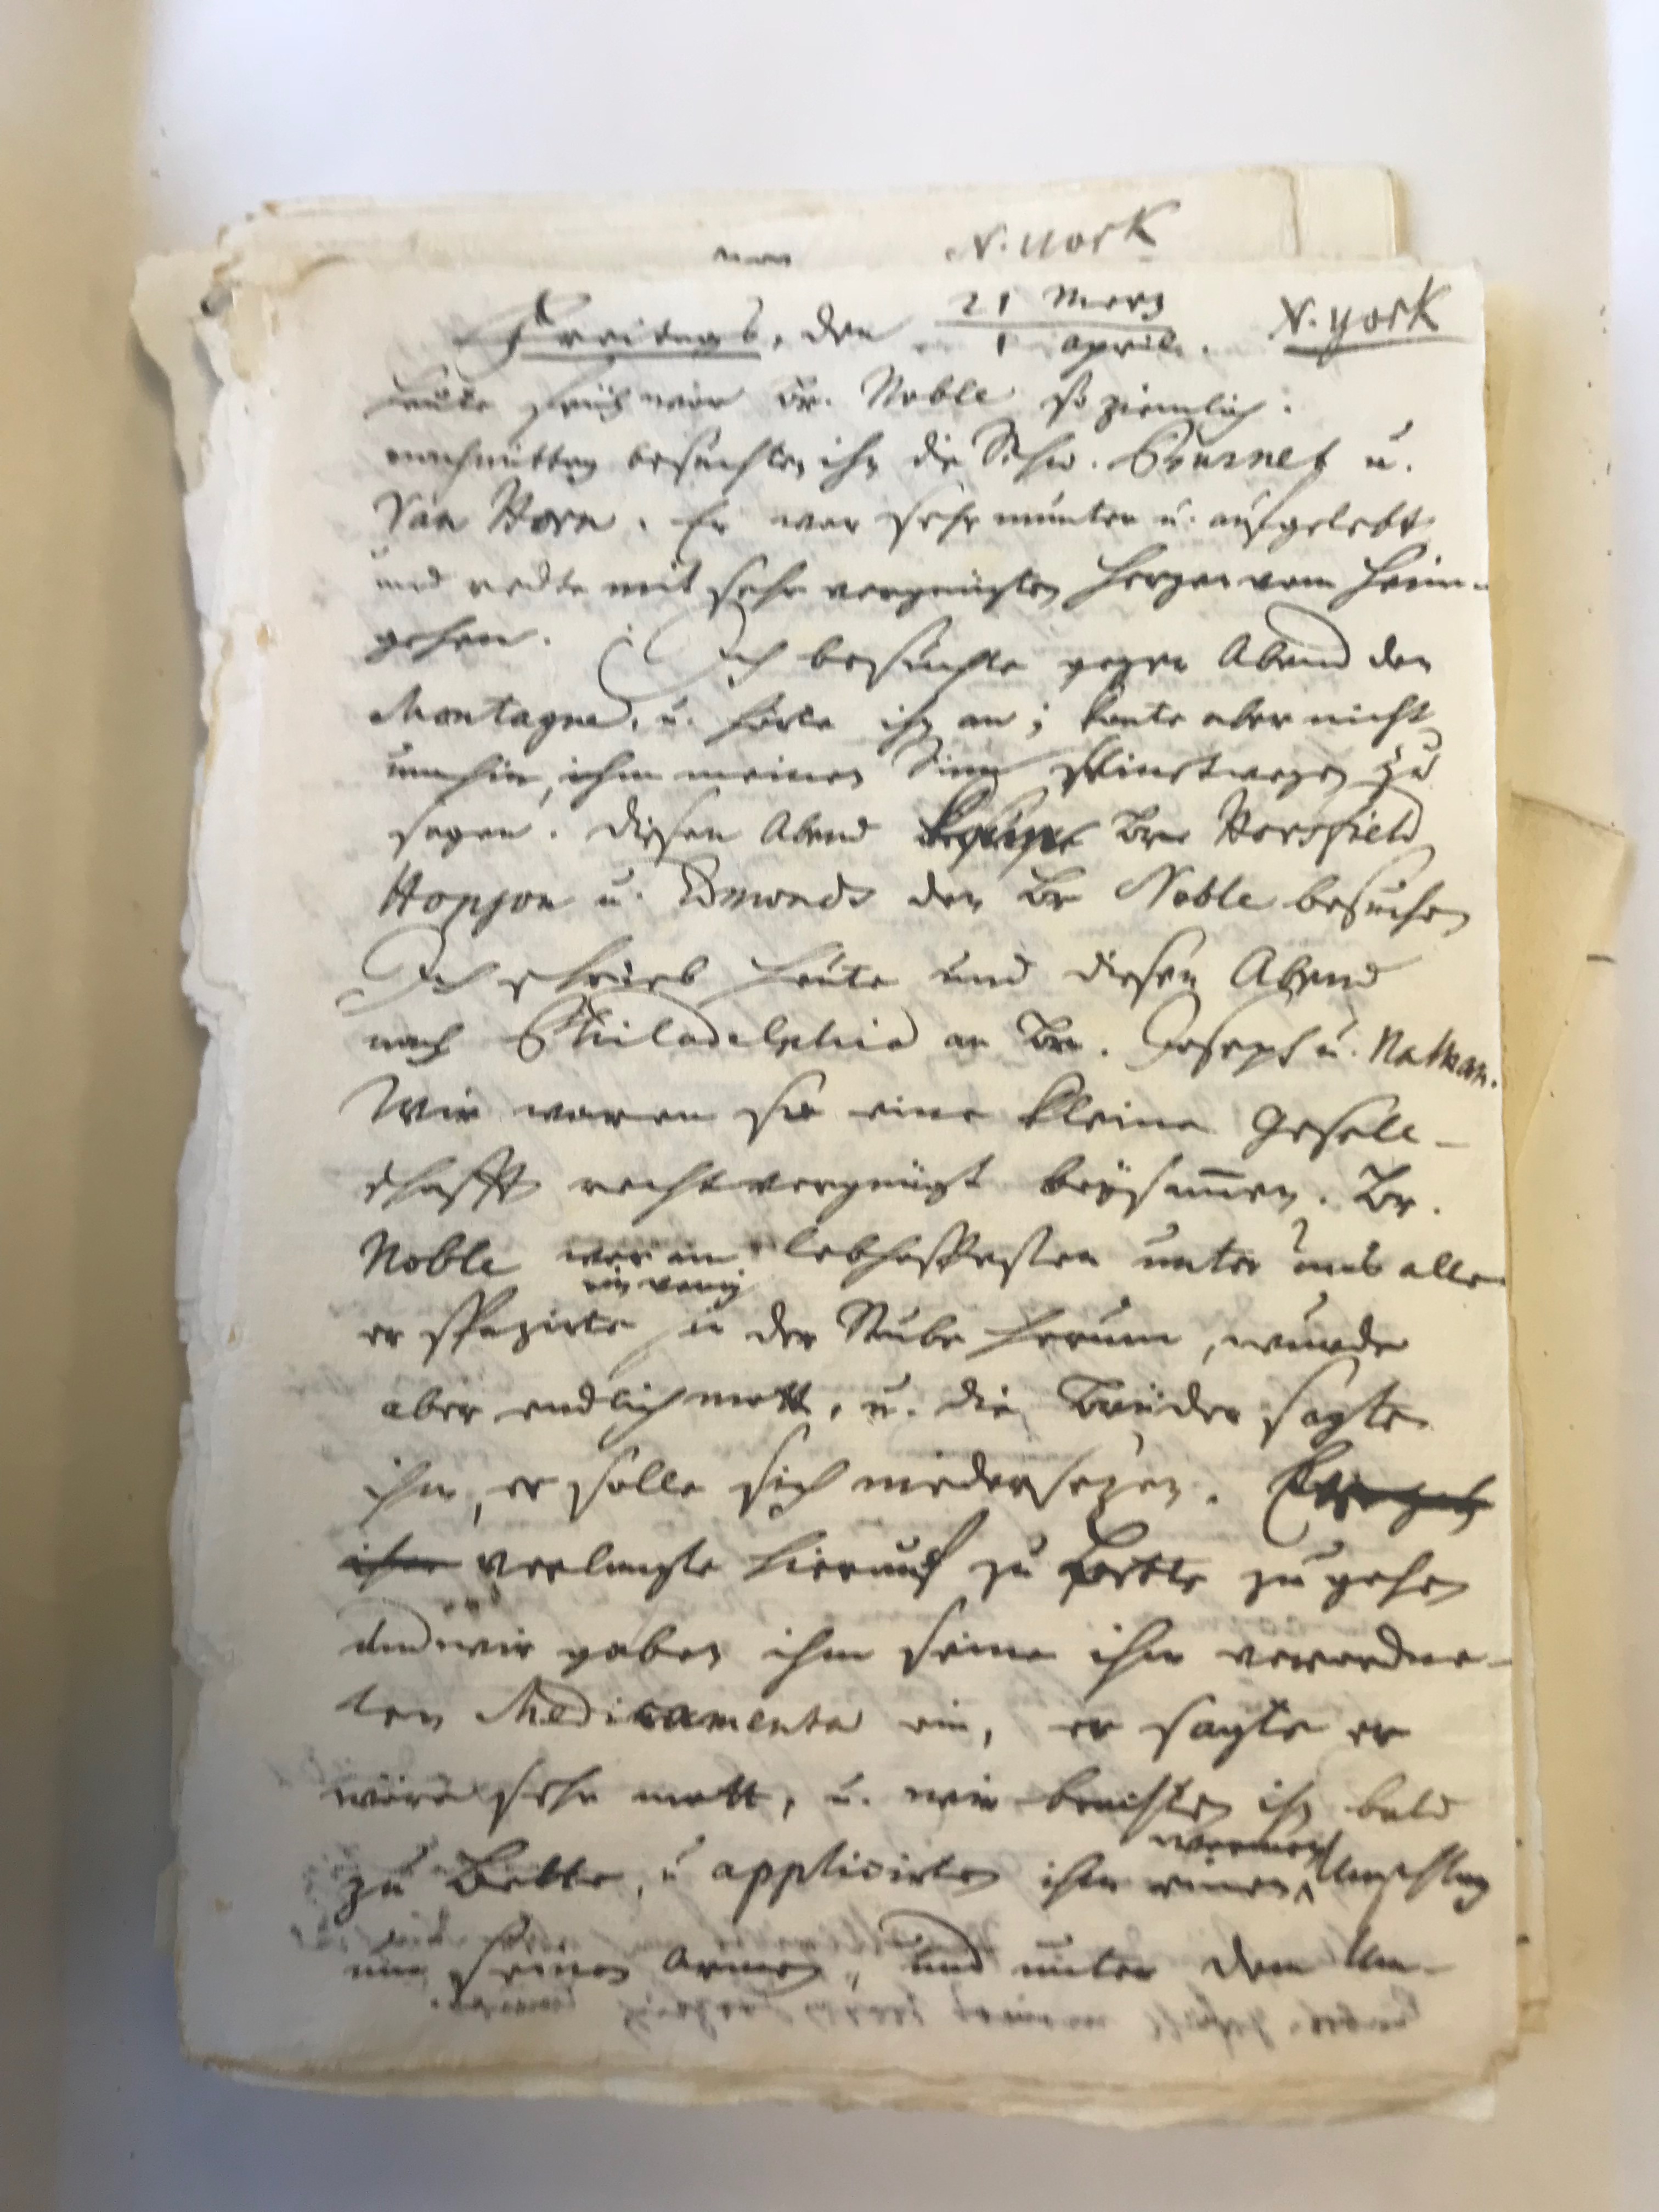 N. York
Freitags, den 21 Merz / 1 april. N. york
Heute früh war Br. Noble so ziemlich.
nachmittag besuchten ihn die Schw. Bournet u.
Van Horn. Er war sehr munter u. aufgelebt
und redte mit sehr vergnügten Herzen vom Heim-
gehen. Ich besuchte gegen Abend den
Montagne, u. hörte ihn an; konte aber nicht
umhin, ihm meinen Sinn seinetwegen zu
sagen. diesen Abend Br. Horsfield
Hopson u. Edmonds den Br Noble besuchen
Ich schrieb heute und diesen Abend
nach Philadelphia an Br. Joseph u. Nathan.
Wir waren so eine kleine Gesell-
schafft recht vergnügt beysam̄en. Br.
Noble war am lebhafftesten unter uns allen
ein wenig
er spazirte in der Stube herum, wurde
aber endlich matt, u. die Brüder sagten
ihm, er solle sich niedersezen. Er
ihm verlangte hierauf zu Bette zu gehen
und wir gaben ihm seine ihm verordne-
ten Medicamenta ein, er sagte er
wäre sehr matt, u. wir brachten ihn bald
warmen
zu Bette, u applicirten ihm einen Umschlag
um seinen Armen, und unter dem Um-